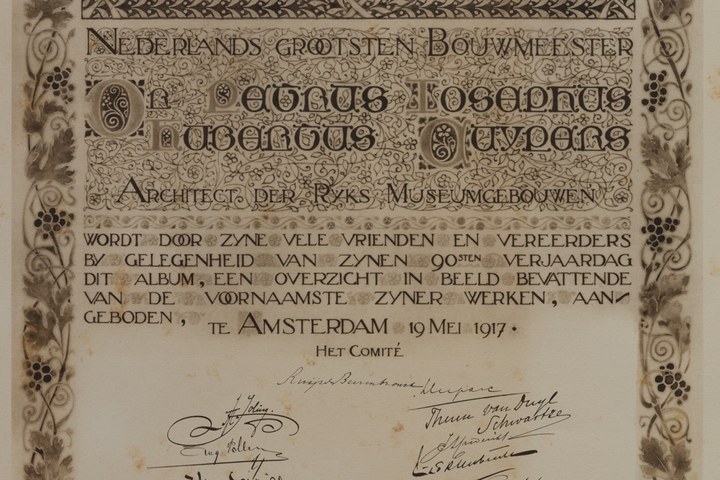 NEDERLANDS GROOTSTEN BOUWMEESTER
DR PETRUS IOSEPHUS
HUBERTUS CUYPERS
ARCHITECT DER RYKS MUSEUMGEBOUWEN
WORDT DOOR ZYNE VELE VRIENDEN EN VEREERDERS
BY GELEGENHEID VAN ZYNEN 90STEN VERJAARDAG
DIT ALBUM, EEN OVERZICHT IN BEELD BEVATTENDE
VAN DE VOORNAAMSTE ZYNER WERKEN, AAN-
GEBODEN, TE AMSTERDAM 19 MEI 1917.
HET COMITÉ
Therese van Duyl
Schwartze